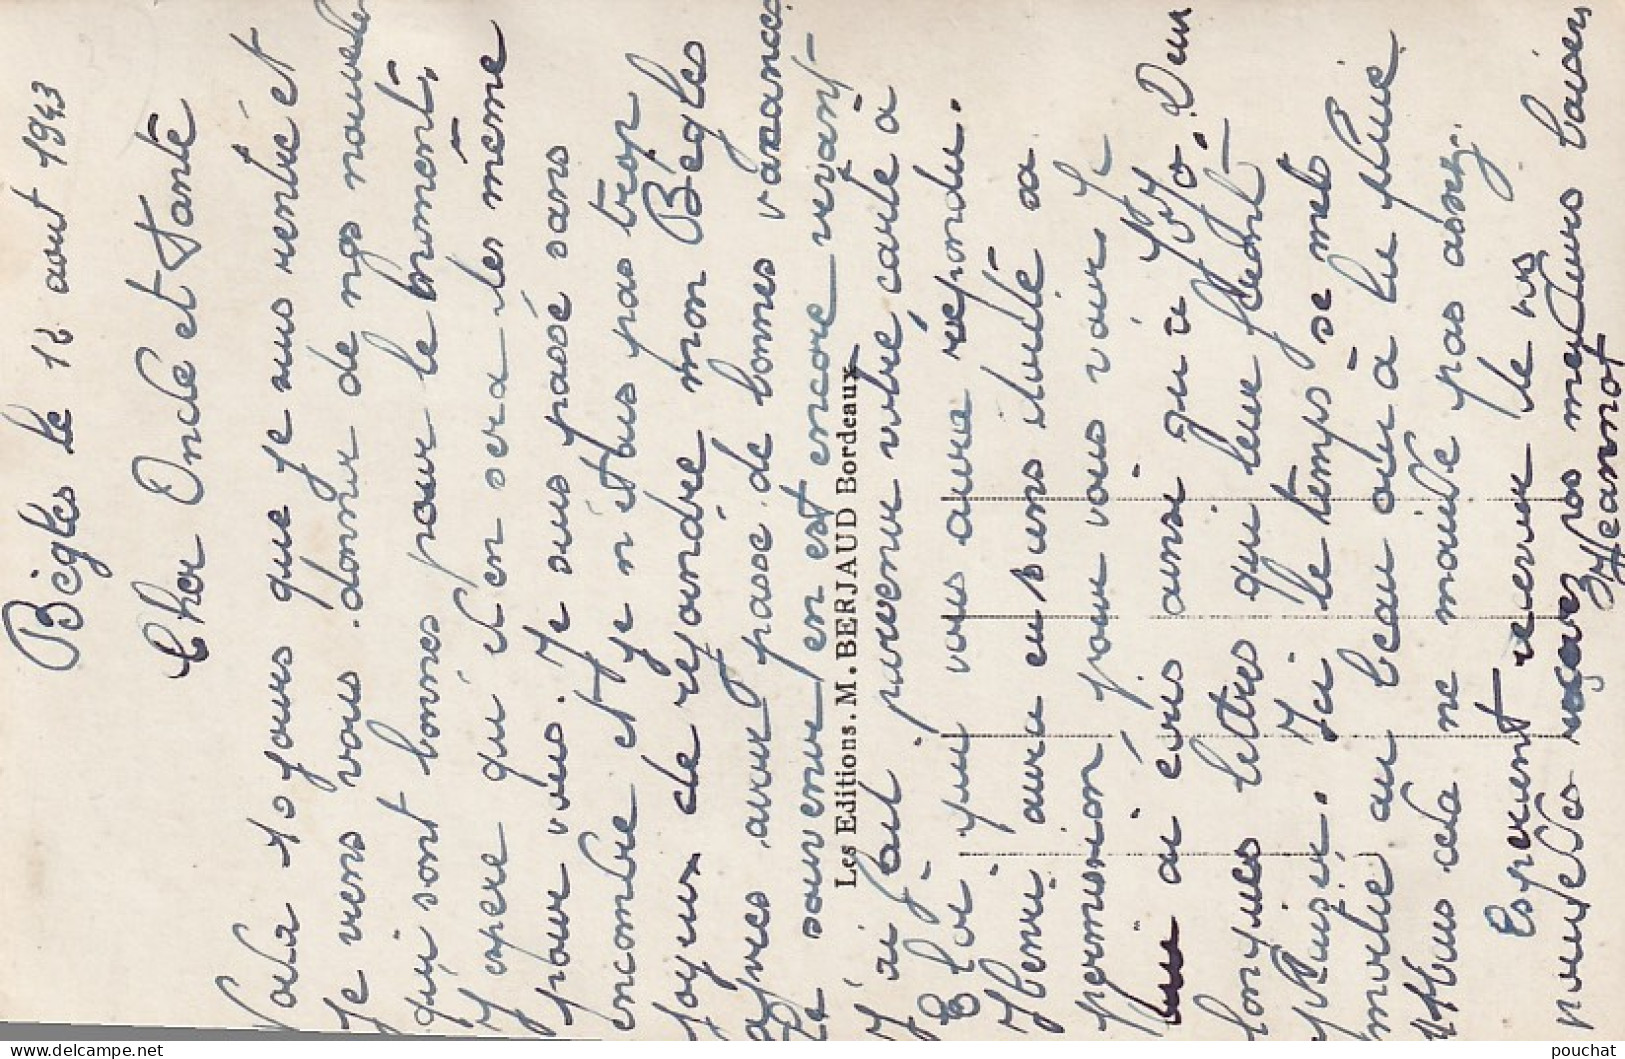 Bègles le 12 aout 1943
Cher Oncle et Tante
Voila 10 jours que je suis rentré et
je viens vous donner de nos nouvelles
qui sont bonnes pour le moment,
J'espere qu'il en sera les même
pour vous. Je suis passé sans
encombre et je n'étais pas trop
joyeux de rejoindre mon Bègles
apres avoir passé de bonnes vacances
Le souvenir en est encore vivant
Les Editions. M. BERJAUD Bordeaux
J'ai fait parvenir votre carte à
Eloi qui vous aura repondu.
Henri aura eu suite à sa
permission pour vous voir Je
lui ai écris ainsi qu'a Jojo. Deux
longues lettres qui leur feront
plaisir. Ici le temps se met
au beau on a la pluie
mais cela ne mouille pas assez.
Esperant recevoir de vos
nouvelles recevez nos meilleurs baisers
Jeannot
pouchat